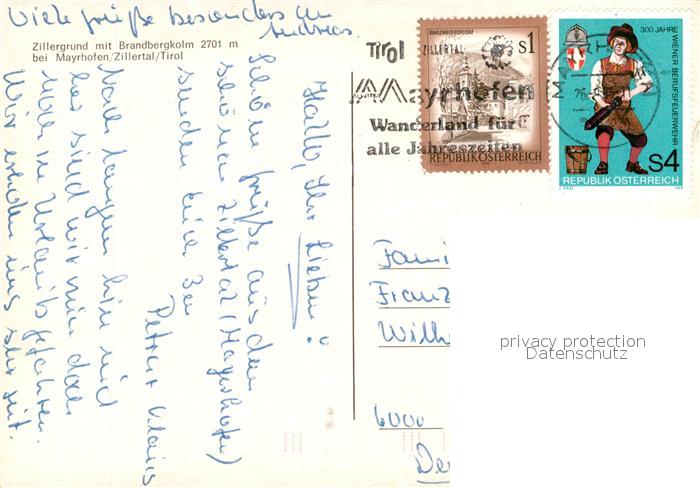 Viele Grüße besonders an
Andreas.
Zillergrund mit Brandbergkolm 2701 m
bei Mayrhofen/Zillertal/Tirol
Hallo, Ihr Lieben!
Schöne Grüße aus dem
schönen Zillertal (Mayrhofen)
senden Euch
Petra + Klaus
Nach langem hin und
her sind wir nun doch
in Urlaub gefahren.
Wir erholen uns sehr gut.
Tirol
ZILLERTAL
Mayrhofen
Wanderland für
alle Jahreszeiten
KAHLENBERGERDORF
S1
REPUBLIK ÖSTERREICH
300 JAHRE WIENER BERUFSFEUERWEHR
S4
REPUBLIK ÖSTERREICH
1986
Fami
Franz
Wilh
6000
De
privacy protection
Datenschutz